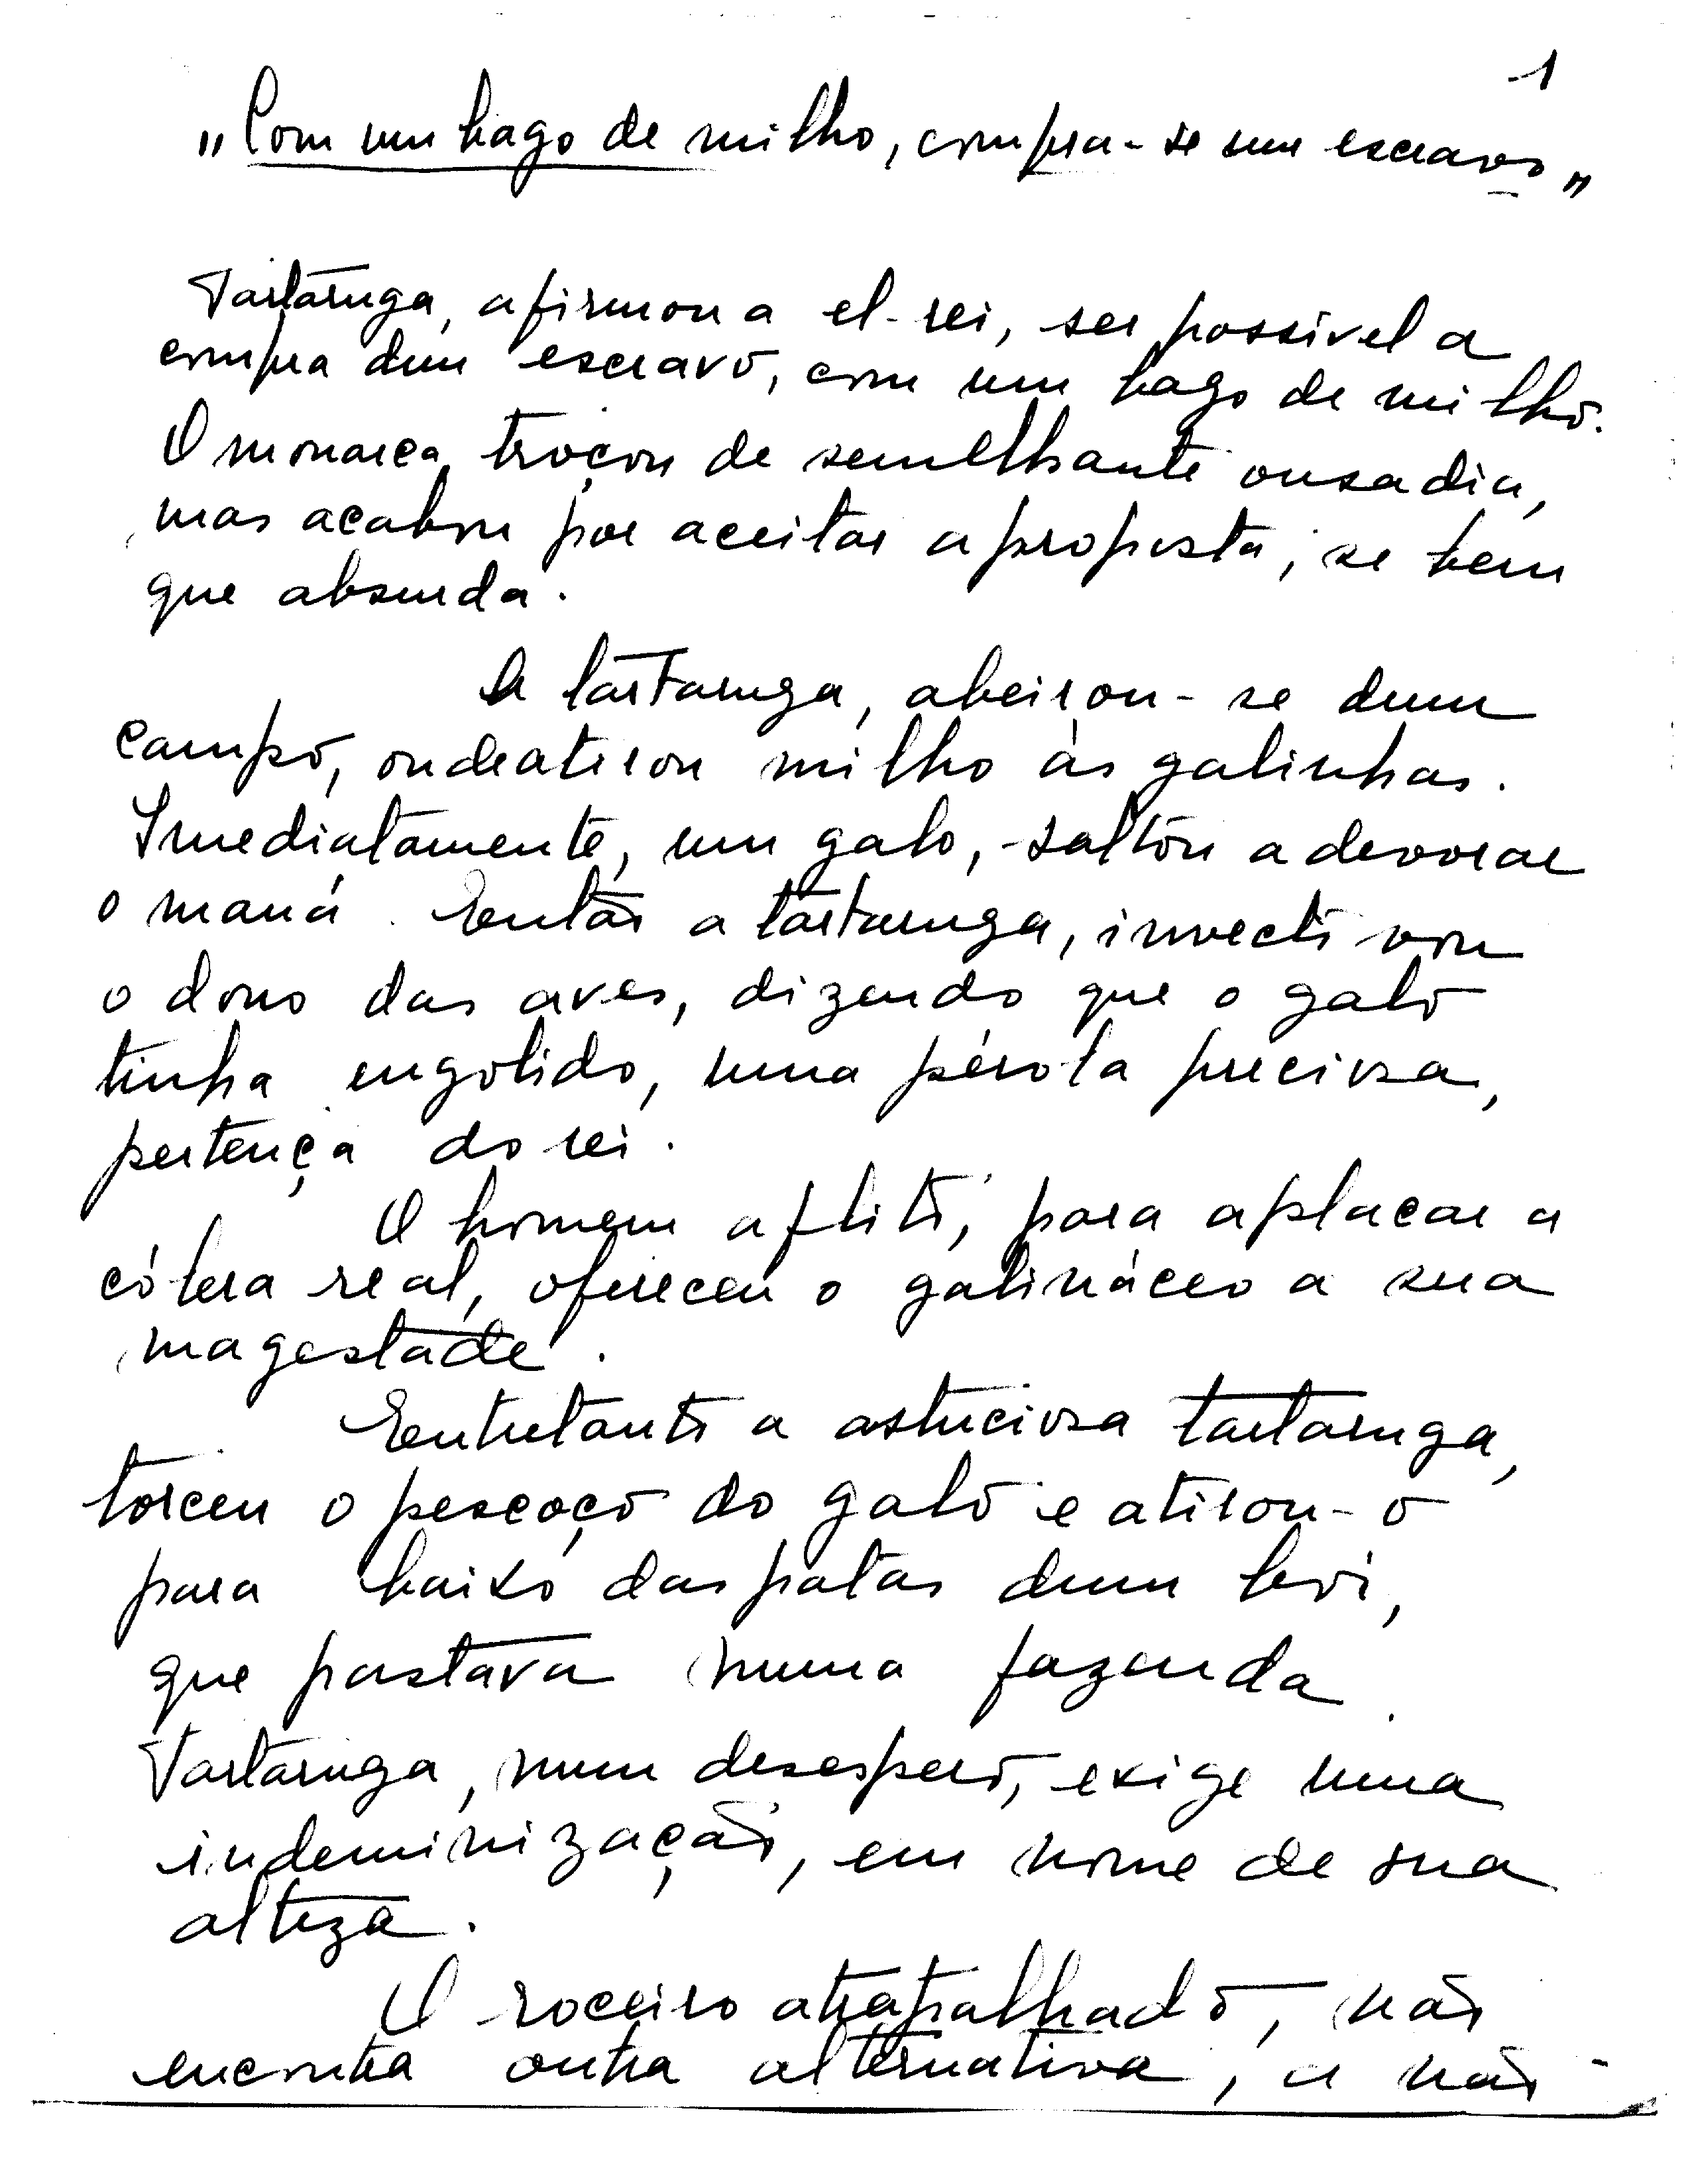 1
"Com um bago de milho, compra-se um escravo"
Tartaruga, afirmou a el-rei, ser possível a
compra dum escravo, com um bago de milho.
O monarca, troçou de semelhante ousadia,
mas acabou por aceitar a proposta, se bem
que absurda.
A tartaruga, abeirou-se dum
campo, onde atirou milho às galinhas.
Imediatamente, um galo, saltou a devorar
o maná. Então a tartaruga, invectivou
o dono das aves, dizendo que o galo
tinha engolido, uma pérola preciosa,
pertença do rei.
O homem aflito, para aplacar a
cólera real, ofereceu o galináceo a sua
magestade.
Entretanto a astuciosa tartaruga,
torceu o pescoço do galo e atirou-o
para baixo das patas dum boi,
que pastava numa fazenda.
Tartaruga, num desespero, exige uma
indeminização, em nome de sua
alteza.
O roceiro atrapalhado, não
encontra outra alternativa, a não